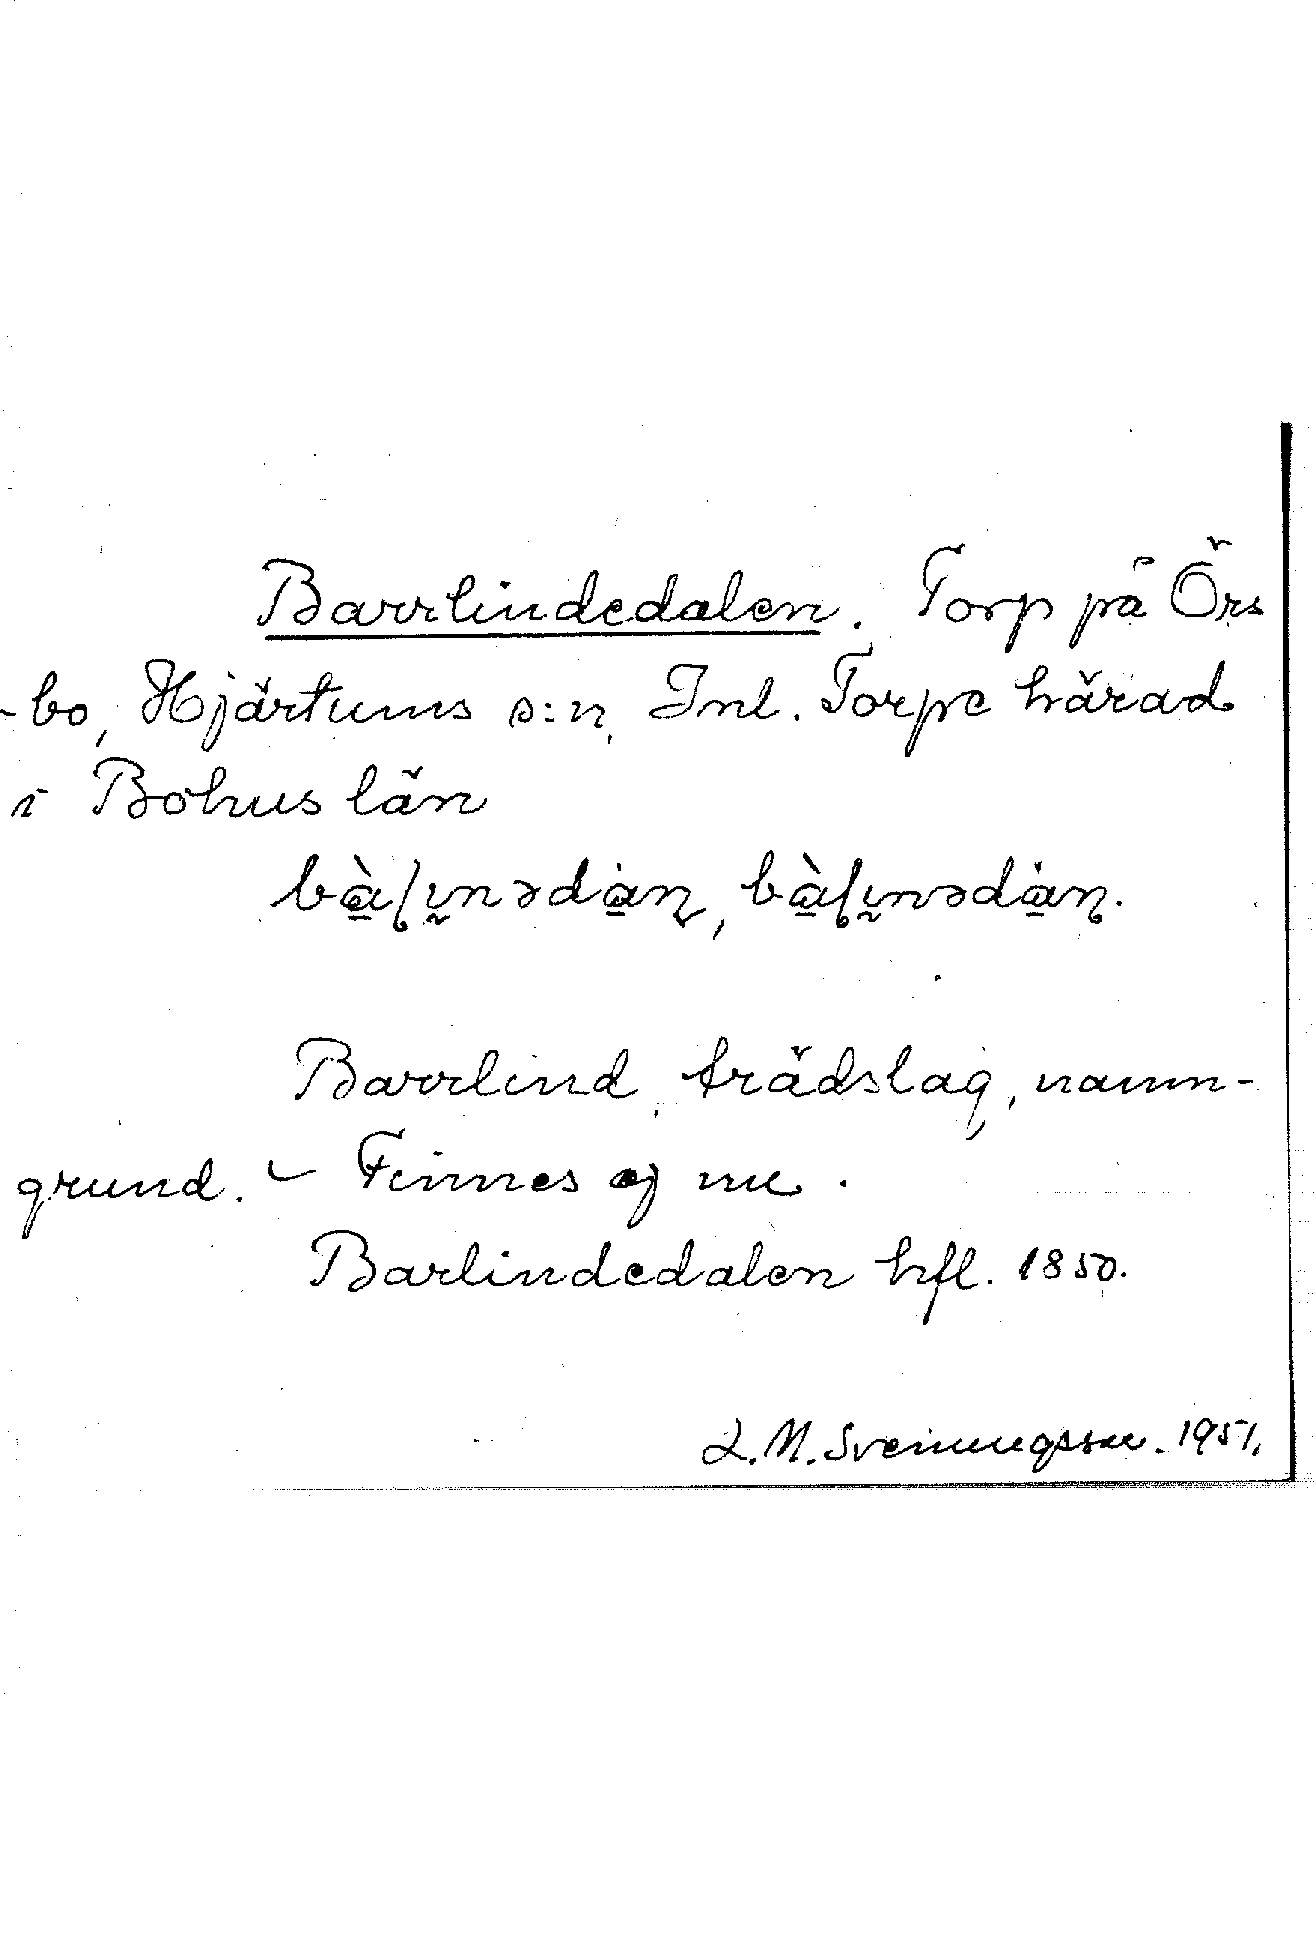 Barrlindedalen. Torp på Örs
-bo, Hjärtums s:n, Inl. Torpe härad
i Bohuslän

Barrlind, trädslag, namn-
grund. – Finnes ej nu.
Barlindedalen hfl. 1850.
L.M. Sveningsson. 1951.